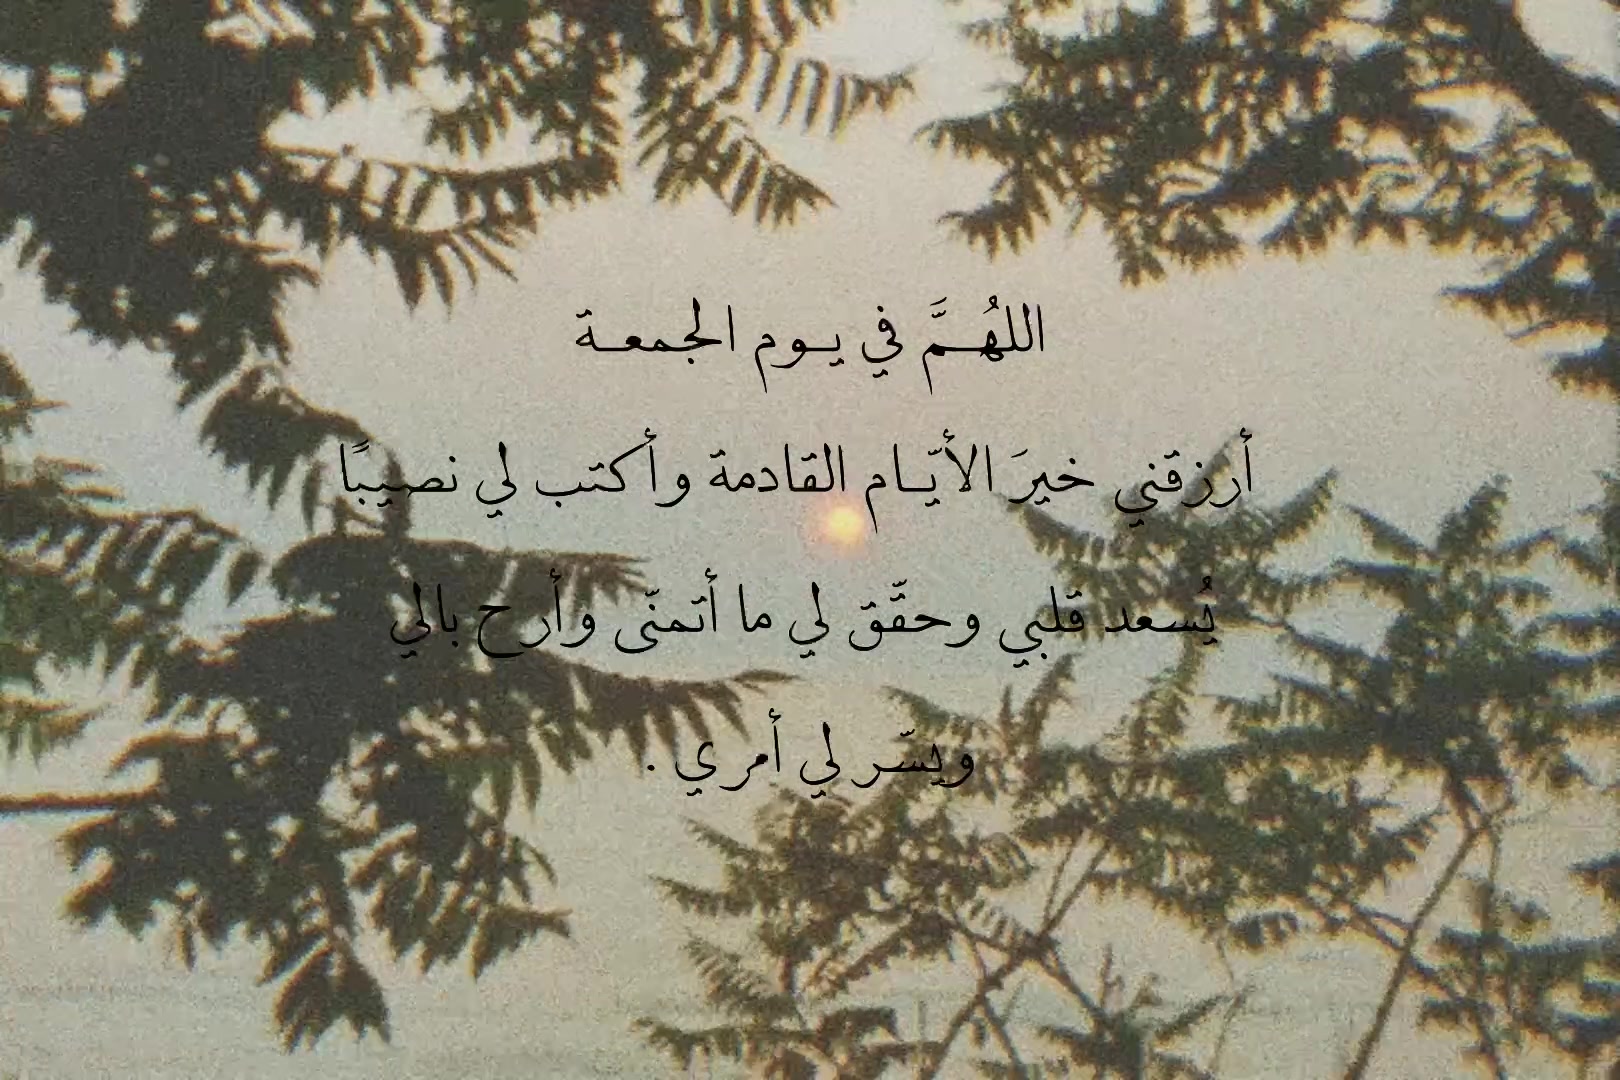 اللهُمَّ في يوم الجمعة
أرزقني خيرَ الأيّام القادمة وأكتب لي نصيبًا
يُسعد قلبي وحقّق لي ما أتمنّى وأرح بالي
ويسّر لي أمري .